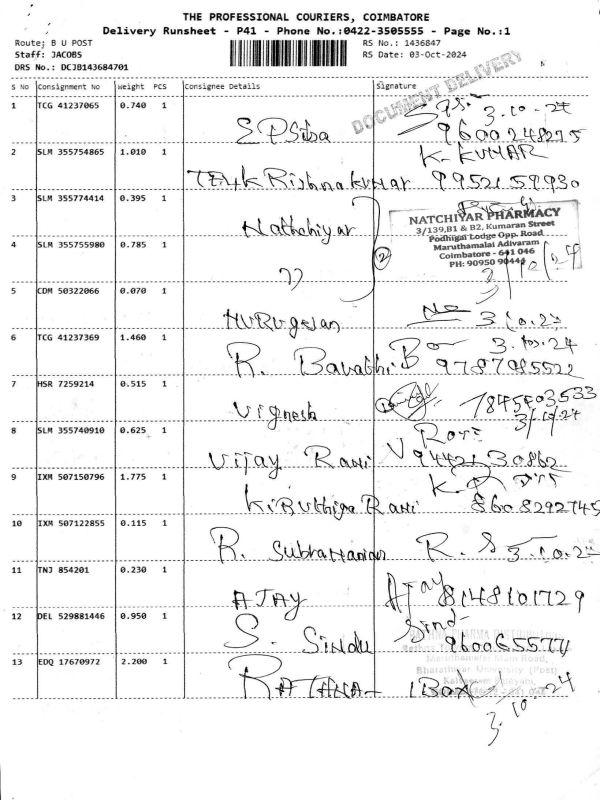 THE PROFESSIONAL COURIERS, COIMBATORE
Delivery Runsheet - P41 - Phone No.:0422-3505555 - Page No.:1
Route: B U POST RS No.: 1436847
Staff: JACOBS RS Date: 03-Oct-2024
DRS No.: DCJB143684701
DOCUMENT DELIVERY
S No Consignment No Weight PCS Consignee Details Signature
1 TCG 41237065 0.740 1 3.10.24
9600248275
2 SLM 355754865 1.010 1 K. KUMAR
Krishnakumar 9952159930
3 SLM 355774414 0.395 1 Nathchiyar
NATCHIYAR PHARMACY
3/139,B1 & B2, Kumaran Street
Podhigai Lodge Opp. Road
Maruthamalai Adivaram
Coimbatore - 641 046
PH: 90950 90444
4 SLM 355755980 0.785 1 " 2 3/10/24
5 CDM 50322066 0.070 1 Murugesan 3.10.24
6 TCG 41237369 1.460 1 R. 3.10.24
9787985522
7 HSR 7259214 0.515 1 Vignesh 7845403533
3/10/24
8 SLM 355740910 0.625 1 Vijay Rani 9442130862
9 IXM 507150796 1.775 1 Kiruthiga Rani 8608292745
10 IXM 507122855 0.115 1 R. Subramanian R. S 3.10.24
11 TNJ 854201 0.230 1 AJAY Ajay 8148101729
12 DEL 529881446 0.950 1 S. Sindu Sind
13 EDQ 17670972 2.200 1 RATHNA - 1 Box
Maruthamalai Main Road,
Bharathiyar University (Post)
3.10.24